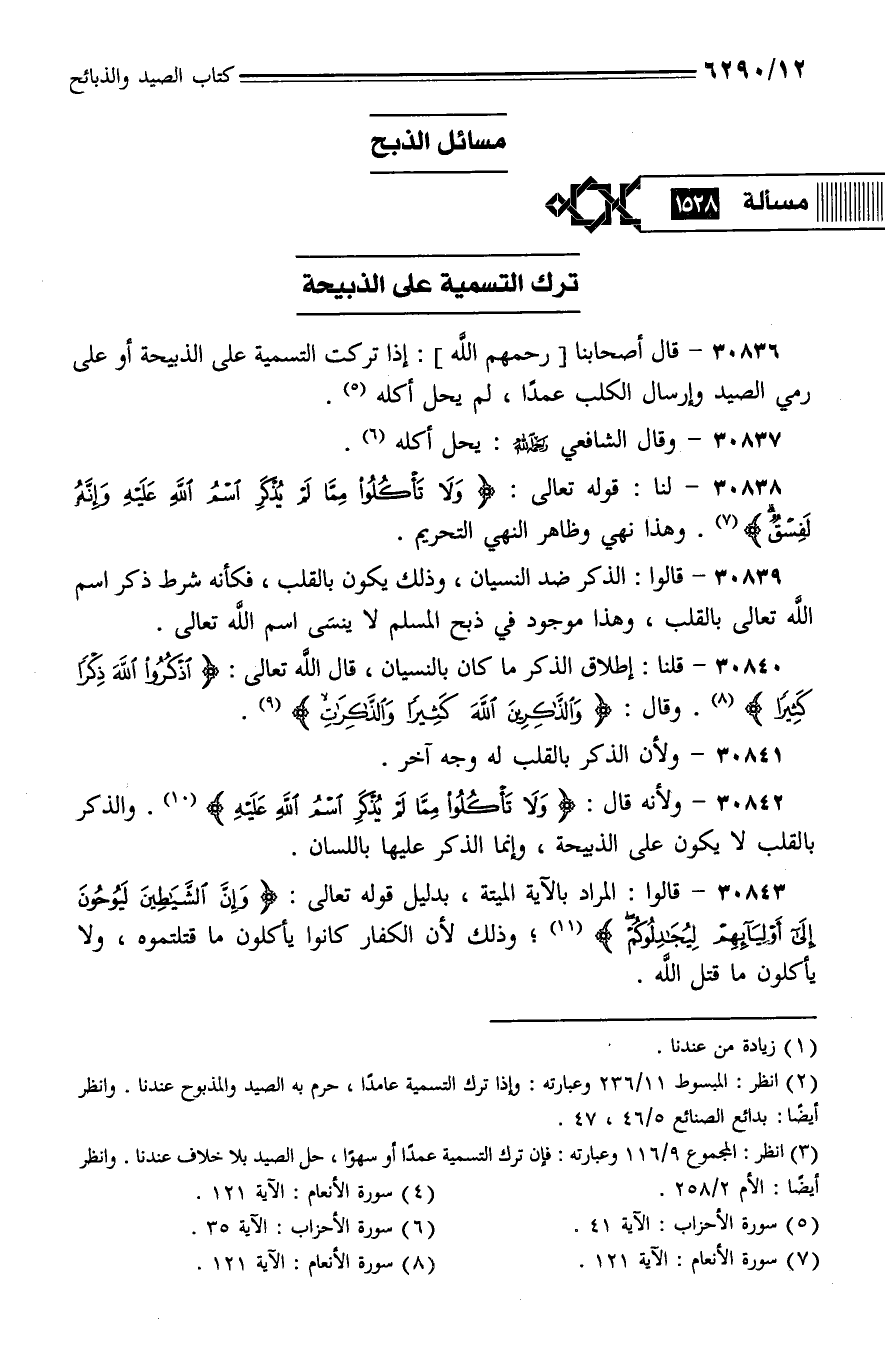 ٦٢٩٠/١٢ كتاب الصيد والذبائح
مسائل الذبح
مسألة ١٥٢٨
ترك التسمية على الذبيحة
٣٠٨٣٦ - قال أصحابنا [ رحمهم الله ] : إذا تركت التسمية على الذبيحة أو على
رمي الصيد وإرسال الكلب عمدًا ، لم يحل أكله (٥) .
٣٠٨٣٧ - وقال الشافعي رحمه الله : يحل أكله (٦) .
٣٠٨٣٨ - لنا : قوله تعالى : ﴿ وَلَا تَأْكُلُوا۟ مِمَّا لَمْ يُذْكَرِ ٱسْمُ ٱللَّهِ عَلَيْهِ وَإِنَّهُۥ
لَفِسْقٌۗ ﴾ (٧) . وهذا نهي وظاهر النهي التحريم .
٣٠٨٣٩ - قالوا : الذكر ضد النسيان ، وذلك يكون بالقلب ، فكأنه شرط ذكر اسم
الله تعالى بالقلب ، وهذا موجود في ذبح المسلم لا ينسَى اسم الله تعالى .
٣٠٨٤٠ - قلنا : إطلاق الذكر ما كان بالنسيان ، قال الله تعالى : ﴿ ٱذْكُرُوا۟ ٱللَّهَ ذِكْرًا
كَثِيرًا ﴾ (٨) . وقال : ﴿ وَٱلذَّٰكِرِينَ ٱللَّهَ كَثِيرًا وَٱلذَّٰكِرَٰتِ ﴾ (٩) .
٣٠٨٤١ - ولأن الذكر بالقلب له وجه آخر .
٣٠٨٤٢ - ولأنه قال : ﴿ وَلَا تَأْكُلُوا۟ مِمَّا لَمْ يُذْكَرِ ٱسْمُ ٱللَّهِ عَلَيْهِ ﴾ (١٠) . والذكر
بالقلب لا يكون على الذبيحة ، وإنما الذكر عليها باللسان .
٣٠٨٤٣ - قالوا : المراد بالآية الميتة ، بدليل قوله تعالى : ﴿ وَإِنَّ ٱلشَّيَٰطِينَ لَيُوحُونَ
إِلَىٰٓ أَوْلِيَآئِهِمْ لِيُجَٰدِلُوكُمْۖ ﴾ (١١) ؛ وذلك لأن الكفار كانوا يأكلون ما قتلتموه ، ولا
يأكلون ما قتل الله .
(١) زيادة من عندنا .
(٢) انظر : المبسوط ٢٣٦/١١ وعبارته : وإذا ترك التسمية عامدًا ، حرم به الصيد والمذبوح عندنا . وانظر
أيضًا : بدائع الصنائع ٤٦/٥ ، ٤٧ .
(٣) انظر : المجموع ١١٦/٩ وعبارته : فإن ترك التسمية عمدًا أو سهوًا ، حل الصيد بلا خلاف عندنا . وانظر
أيضًا : الأم ٢٥٨/٢ . (٤) سورة الأنعام : الآية ١٢١ .
(٥) سورة الأحزاب : الآية ٤١ . (٦) سورة الأحزاب : الآية ٣٥ .
(٧) سورة الأنعام : الآية ١٢١ . (٨) سورة الأنعام : الآية ١٢١ .